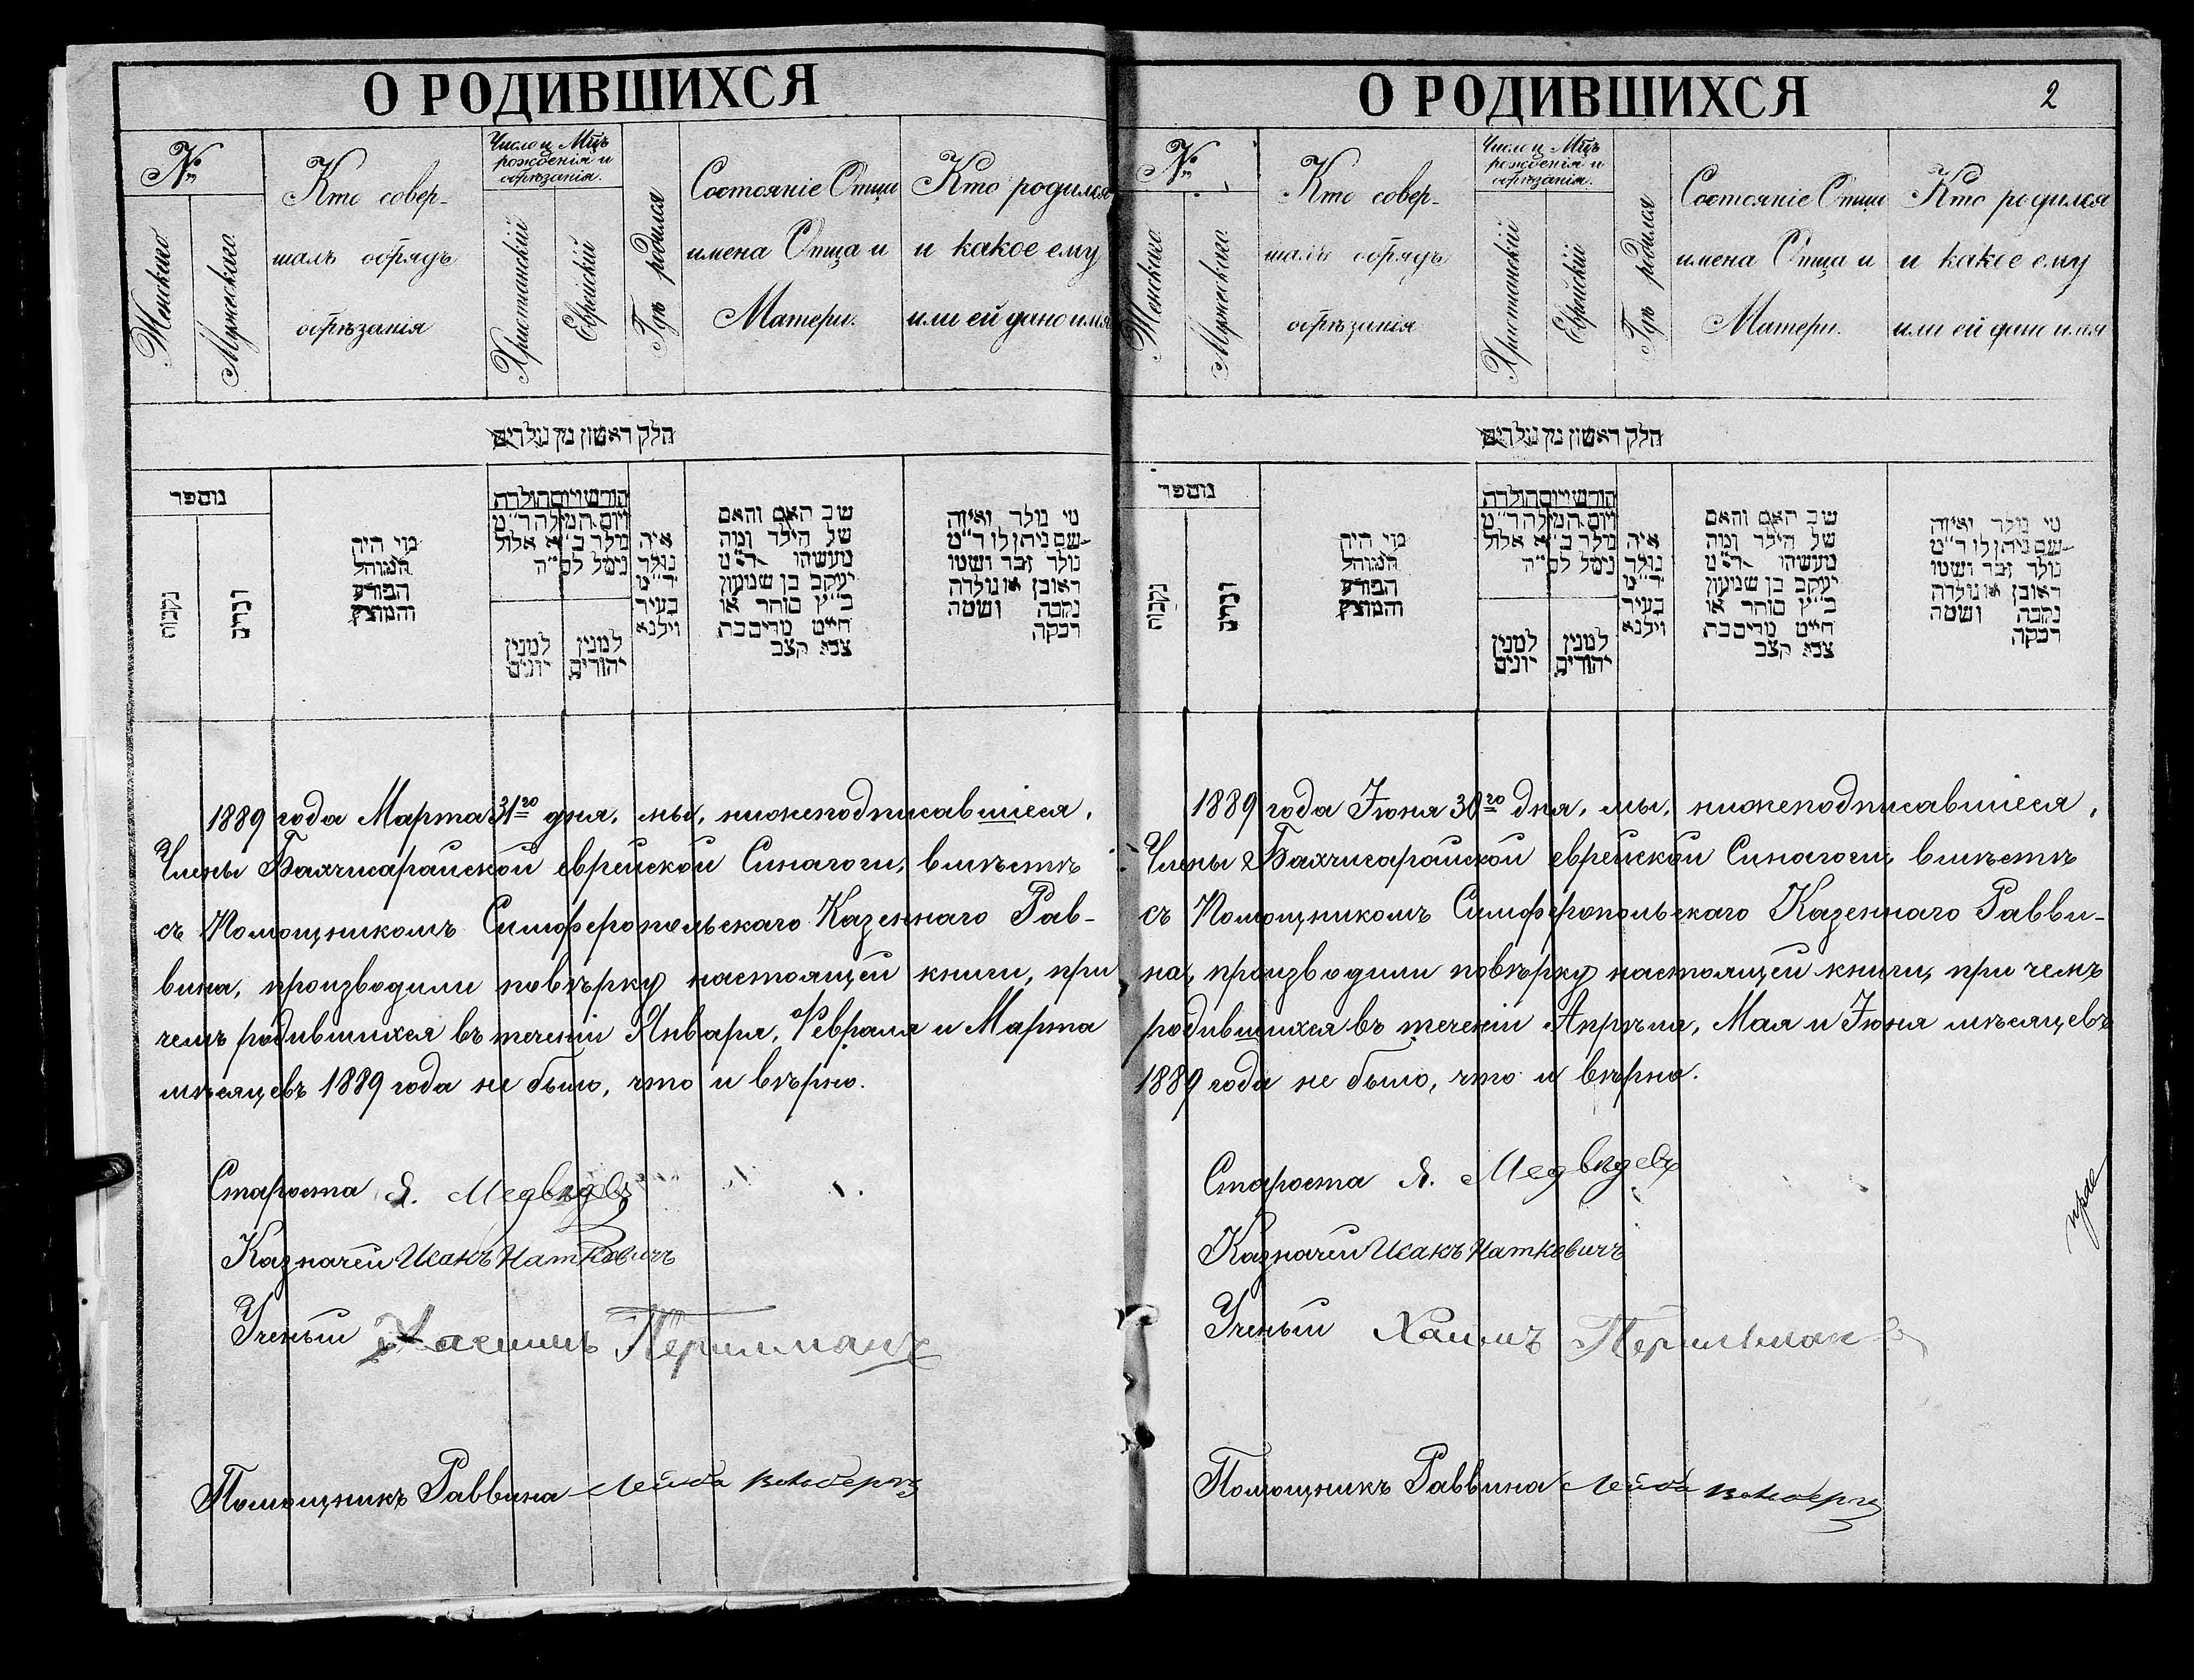 О РОДИВШИХСЯ
№
Женскаго
Мужескаго
Кто совер-
шалъ обрядъ
обрѣзанія
Число и Мцъ
рожденія и
обрѣзанія.
Христіанскій
Еврейскій
Гдѣ родился
Состояніе Отца
имена Отца и
Матери.
Кто родился
и какое ему
или ей дано имя
חלק ראשון מן נולדים
מספר
נקבות
זכרים
מי היה
המוהל
הפורע
והמוצץ
חודש ויום הולדת
ויום המילה ר״ט
נולד כ״א אלול
נימל לס״ה
למנין
יונים
למנין
יהודים
איה
נולד
ד״ט
בעיר
וילנא
שב האם והאם
של הילד ומה
מעשיהו ד״ט
יעקב בן שמעון
כ״ץ סוחר או
חייט מרים בת
צבא קצב
מי נולד ואיזה
שם ניתן לו ד״ט
נולד זכר ושמו
ראובן או נולדה
נקבה ושמה
רבקה
1889 года Марта 31го дня, мы, нижеподписавшіеся,
Члены Бахчисарайской еврейской Синагоги, вмѣстѣ
съ Помощникомъ Симферопольскаго Казеннаго Рав-
вина, производили повѣрку настоящей книги, при
чемъ родившихся въ теченіи Января, Февраля и Марта
мѣсяцевъ 1889 года не было, что и вѣрно.
Староста Я. Медвѣдевъ
Казначей Исакъ Наткевичъ
Ученый Хаимъ Перильманъ
Помощникъ Раввина Лейба Вольбергъ
О РОДИВШИХСЯ
2
№
Женскаго
Мужескаго
Кто совер-
шалъ обрядъ
обрѣзанія
Число и Мцъ
рожденія и
обрѣзанія.
Христіанскій
Еврейскій
Гдѣ родился
Состояніе Отца
имена Отца и
Матери.
Кто родился
и какое ему
или ей дано имя
חלק ראשון מן נולדים
מספר
נקבות
זכרים
מי היה
המוהל
הפורע
והמוצץ
חודש ויום הולדת
ויום המילה ר״ט
נולד כ״א אלול
נימל לס״ה
למנין
יונים
למנין
יהודים
איה
נולד
ד״ט
בעיר
וילנא
שב האם והאם
של הילד ומה
מעשיהו ד״ט
יעקב בן שמעון
כ״ץ סוחר או
חייט מרים בת
צבא קצב
מי נולד ואיזה
שם ניתן לו ד״ט
נולד זכר ושמו
ראובן או נולדה
נקבה ושמה
רבקה
1889 года Іюня 30го дня, мы, нижеподписавшіеся,
Члены Бахчисарайской еврейской Синагоги, вмѣстѣ
съ Помощникомъ Симферопольскаго Казеннаго Равви-
на, производили повѣрку настоящей книги, при чемъ
родившихся въ теченіи Апрѣля, Мая и Іюня мѣсяцевъ
1889 года не было, что и вѣрно.
Староста Я. Медвѣдевъ
Казначей Исакъ Наткевичъ
Ученый Хаимъ Перильманъ
Помощникъ Раввина Лейба Вольбергъ